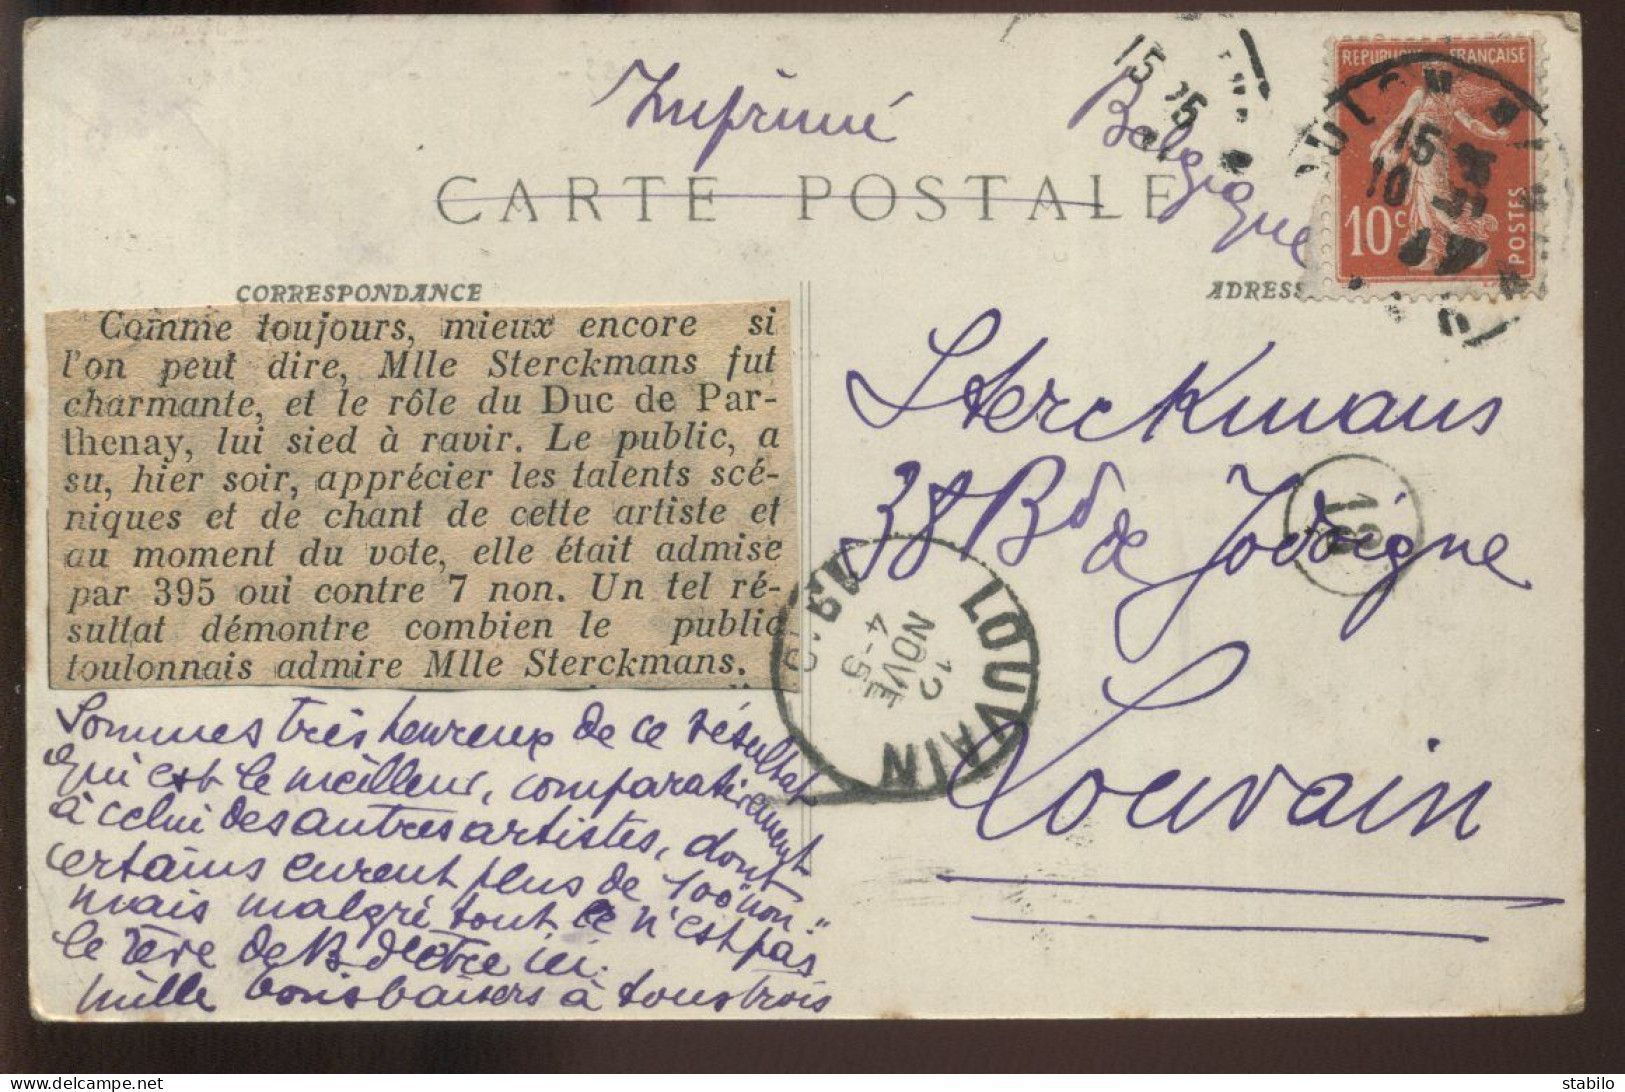 Imprimé
Belgique
CARTE POSTALE
REPUBLIQUE FRANÇAISE
10c
POSTES
15
10
CORRESPONDANCE
ADRESS
Comme toujours, mieux encore si
l'on peut dire, Mlle Sterckmans fut
charmante, et le rôle du Duc de Par-
thenay, lui sied à ravir. Le public, a
su, hier soir, apprécier les talents scé-
niques et de chant de cette artiste et
au moment du vote, elle était admise
par 395 oui contre 7 non. Un tel ré-
sultat démontre combien le public
toulonnais admire Mlle Sterckmans.
Sterckmans
38 Bd de Jodoigne
Louvain
LOUVAIN
12
NOVE
4-5
LOUVAIN
Sommes très heureux de ce résultat
qui est le meilleur, comparativement
à celui des autres artistes, dont
certains eurent plus de 100 "non"
mais malgré tout ce n'est pas
le rêve de B d'être ici.
Mille bons baisers à tous trois
stabilo